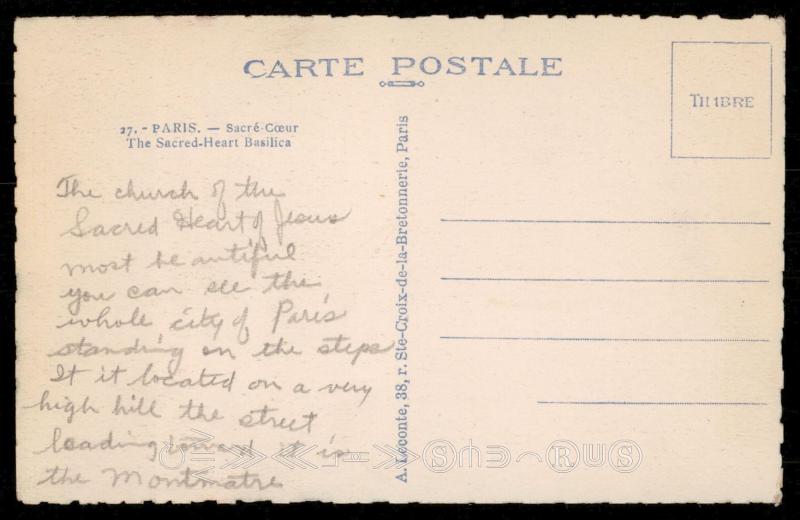 CARTE POSTALE
TIMBRE
27. - PARIS. — Sacré-Cœur
The Sacred-Heart Basilica
The church of the
Sacred Heart of Jesus
most beautiful
you can see the
whole city of Paris
standing on the steps
It it located on a very
high hill the street
leading toward it is
the Montmatre
A. Leconte, 38, r. Ste-Croix-de-la-Bretonnerie, Paris